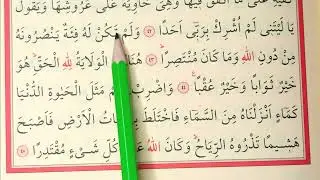 يَا لَيْتَنٖى لَمْ اُشْرِكْ بِرَبّٖٓى اَحَدًا ﴿٤٢﴾ وَلَمْ تَكُنْ لَهُ فِئَةٌ يَنْصُرُونَهُ
مِنْ دُونِ اللّٰهِ وَمَا كَانَ مُنْتَصِرًا ﴿٤٣﴾ هُنَالِكَ الْوَلَايَةُ لِلّٰهِ الْحَقِّ هُوَ
خَيْرٌ ثَوَابًا وَخَيْرٌ عُقْبًا ﴿٤٤﴾ وَاضْرِبْ لَهُمْ مَثَلَ الْحَيٰوةِ الدُّنْيَا
كَمَٓاءٍ اَنْزَلْنَاهُ مِنَ السَّمَٓاءِ فَاخْتَلَطَ بِهٖ نَبَاتُ الْاَرْضِ فَاَصْبَحَ
هَشٖيمًا تَذْرُوهُ الرِّيَاحُ وَكَانَ اللّٰهُ عَلٰى كُلِّ شَیْءٍ مُقْتَدِرًا ﴿٤٥﴾